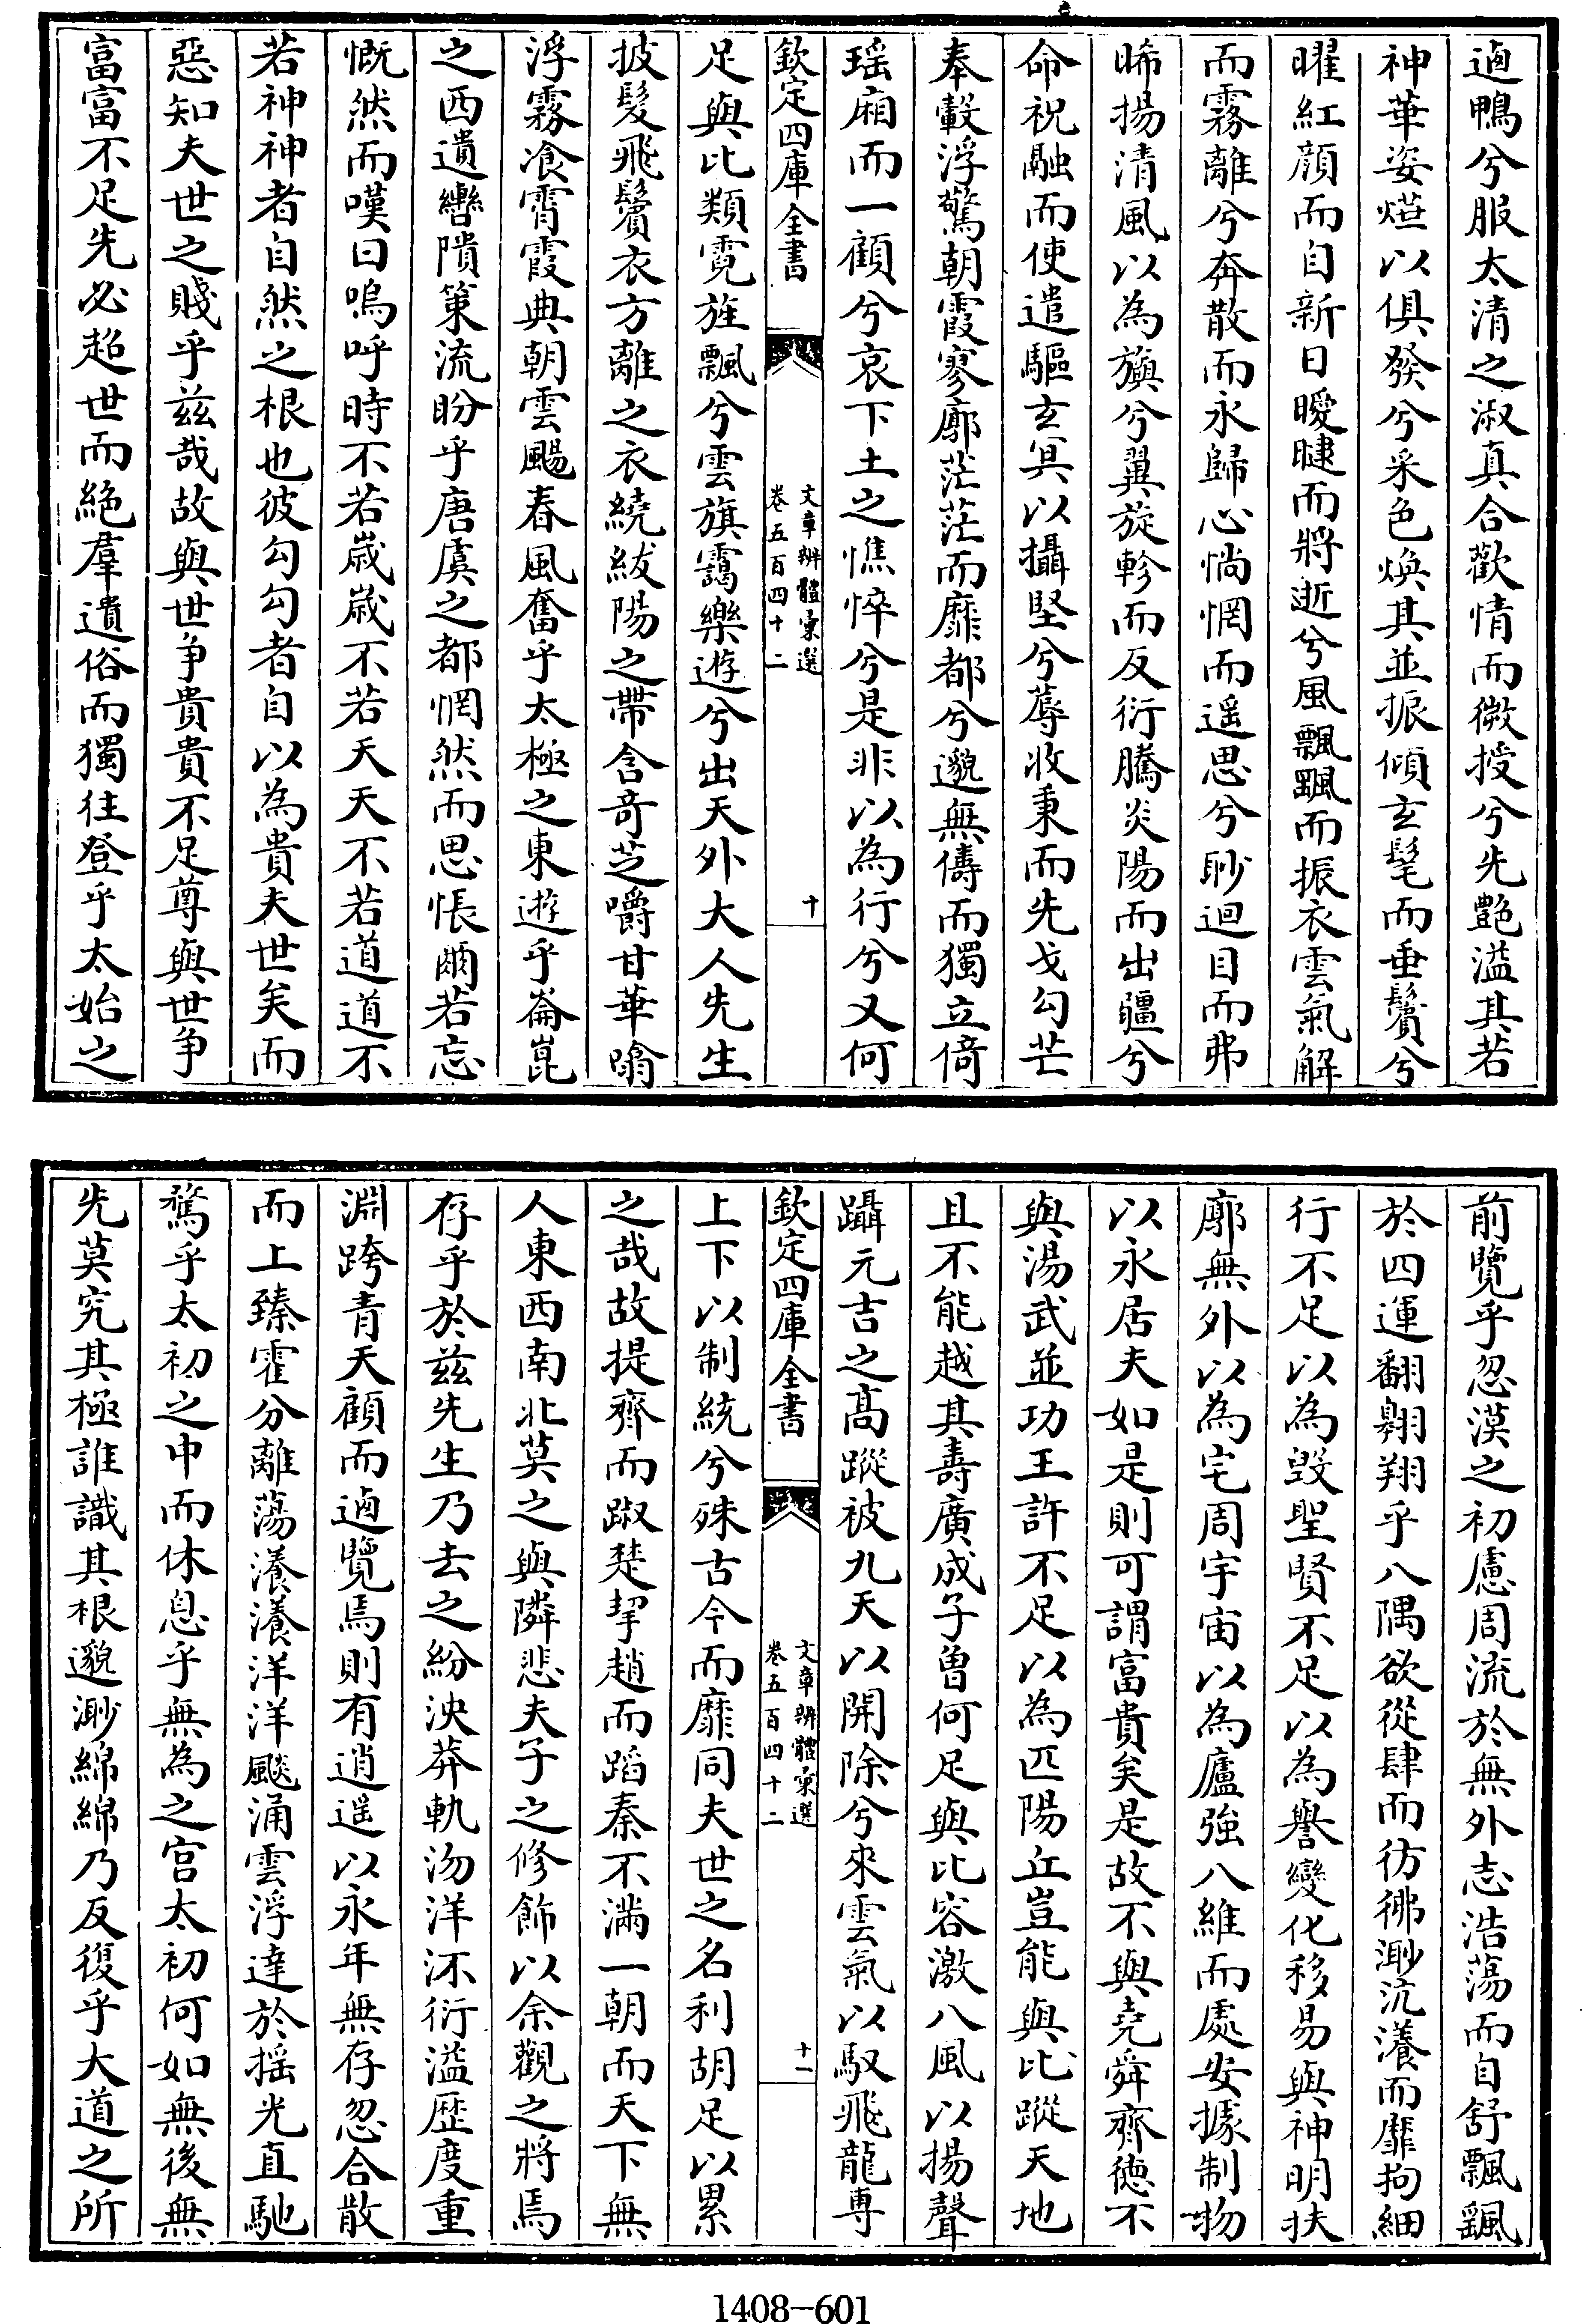 逌鴨兮服太清之淑真合歡情而微授兮先艶溢其若
神華姿燁以俱發兮采色煥其並振傾玄髦而垂鬢兮
曜紅顏而自新日曖㫸而將逝兮風飄颻而振衣雲氣解
而霧離兮奔散而永歸心惝惘而遥思兮眇迴目而弗
晞揚清風以為旟兮翼旋軫而反衍騰炎陽而出疆兮
命祝融而使遣驅玄冥以攝堅兮蓐收秉而先戈勾芒
奉轂浮驚朝霞寥廓茫茫而靡都兮邈無儔而獨立倚
瑶廂而一顧兮哀下土之憔悴兮是非以為行兮又何
欽定四庫全書
文章辨體彙選
卷五百四十二
十
足與比類霓旌飄兮雲旗靄樂遊兮出天外大人先生
披髮飛鬢衣方離之衣繞紱陽之帶含奇芝嚼甘華噏
浮霧飡霄霞典朝雲颺春風奮乎太極之東遊乎崙崑
之西遺轡隤策流盼乎唐虞之都惘然而思悵爾若忘
慨然而嘆曰嗚呼時不若歲歲不若天天不若道道不
若神神者自然之根也彼勾勾者自以為貴夫世矣而
惡知夫世之賤乎兹哉故與世争貴貴不足尊與世争
富富不足先必超世而絶羣遺俗而獨往登乎太始之
前覽乎忽漠之初慮周流於無外志浩蕩而自舒飄颻
於四運翻翱翔乎八隅欲從肆而彷彿渺沆瀁而靡拘細
行不足以為毀聖賢不足以為譽變化移易與神明扶
廓無外以為宅周宇宙以為廬強八維而處安據制物
以永居夫如是則可謂富貴矣是故不與堯舜齊徳不
與湯武並功王許不足以為匹陽丘豈能與比蹤天地
且不能越其壽廣成子曽何足與比容激八風以揚聲
躡元吉之髙蹤被九天以開除兮來雲氣以馭飛龍専
欽定四庫全書
文章辨體彙選
卷五百四十二
十一
上下以制統兮殊古今而靡同夫世之名利胡足以累
之哉故提齊而踧楚挈趙而蹈秦不滿一朝而天下無
人東西南北莫之與隣悲夫子之修飾以余觀之將焉
存乎於兹先生乃去之紛泱莽軌沕洋㳅衍溢歴度重
淵跨青天顧而逌覽焉則有逍遥以永年無存忽合散
而上臻霍分離蕩瀁瀁洋洋飈涌雲浮達於揺光直馳
騖乎太初之中而休息乎無為之宫太初何如無後無
先莫究其極誰識其根邈渺綿綿乃反復乎大道之所
1408-601